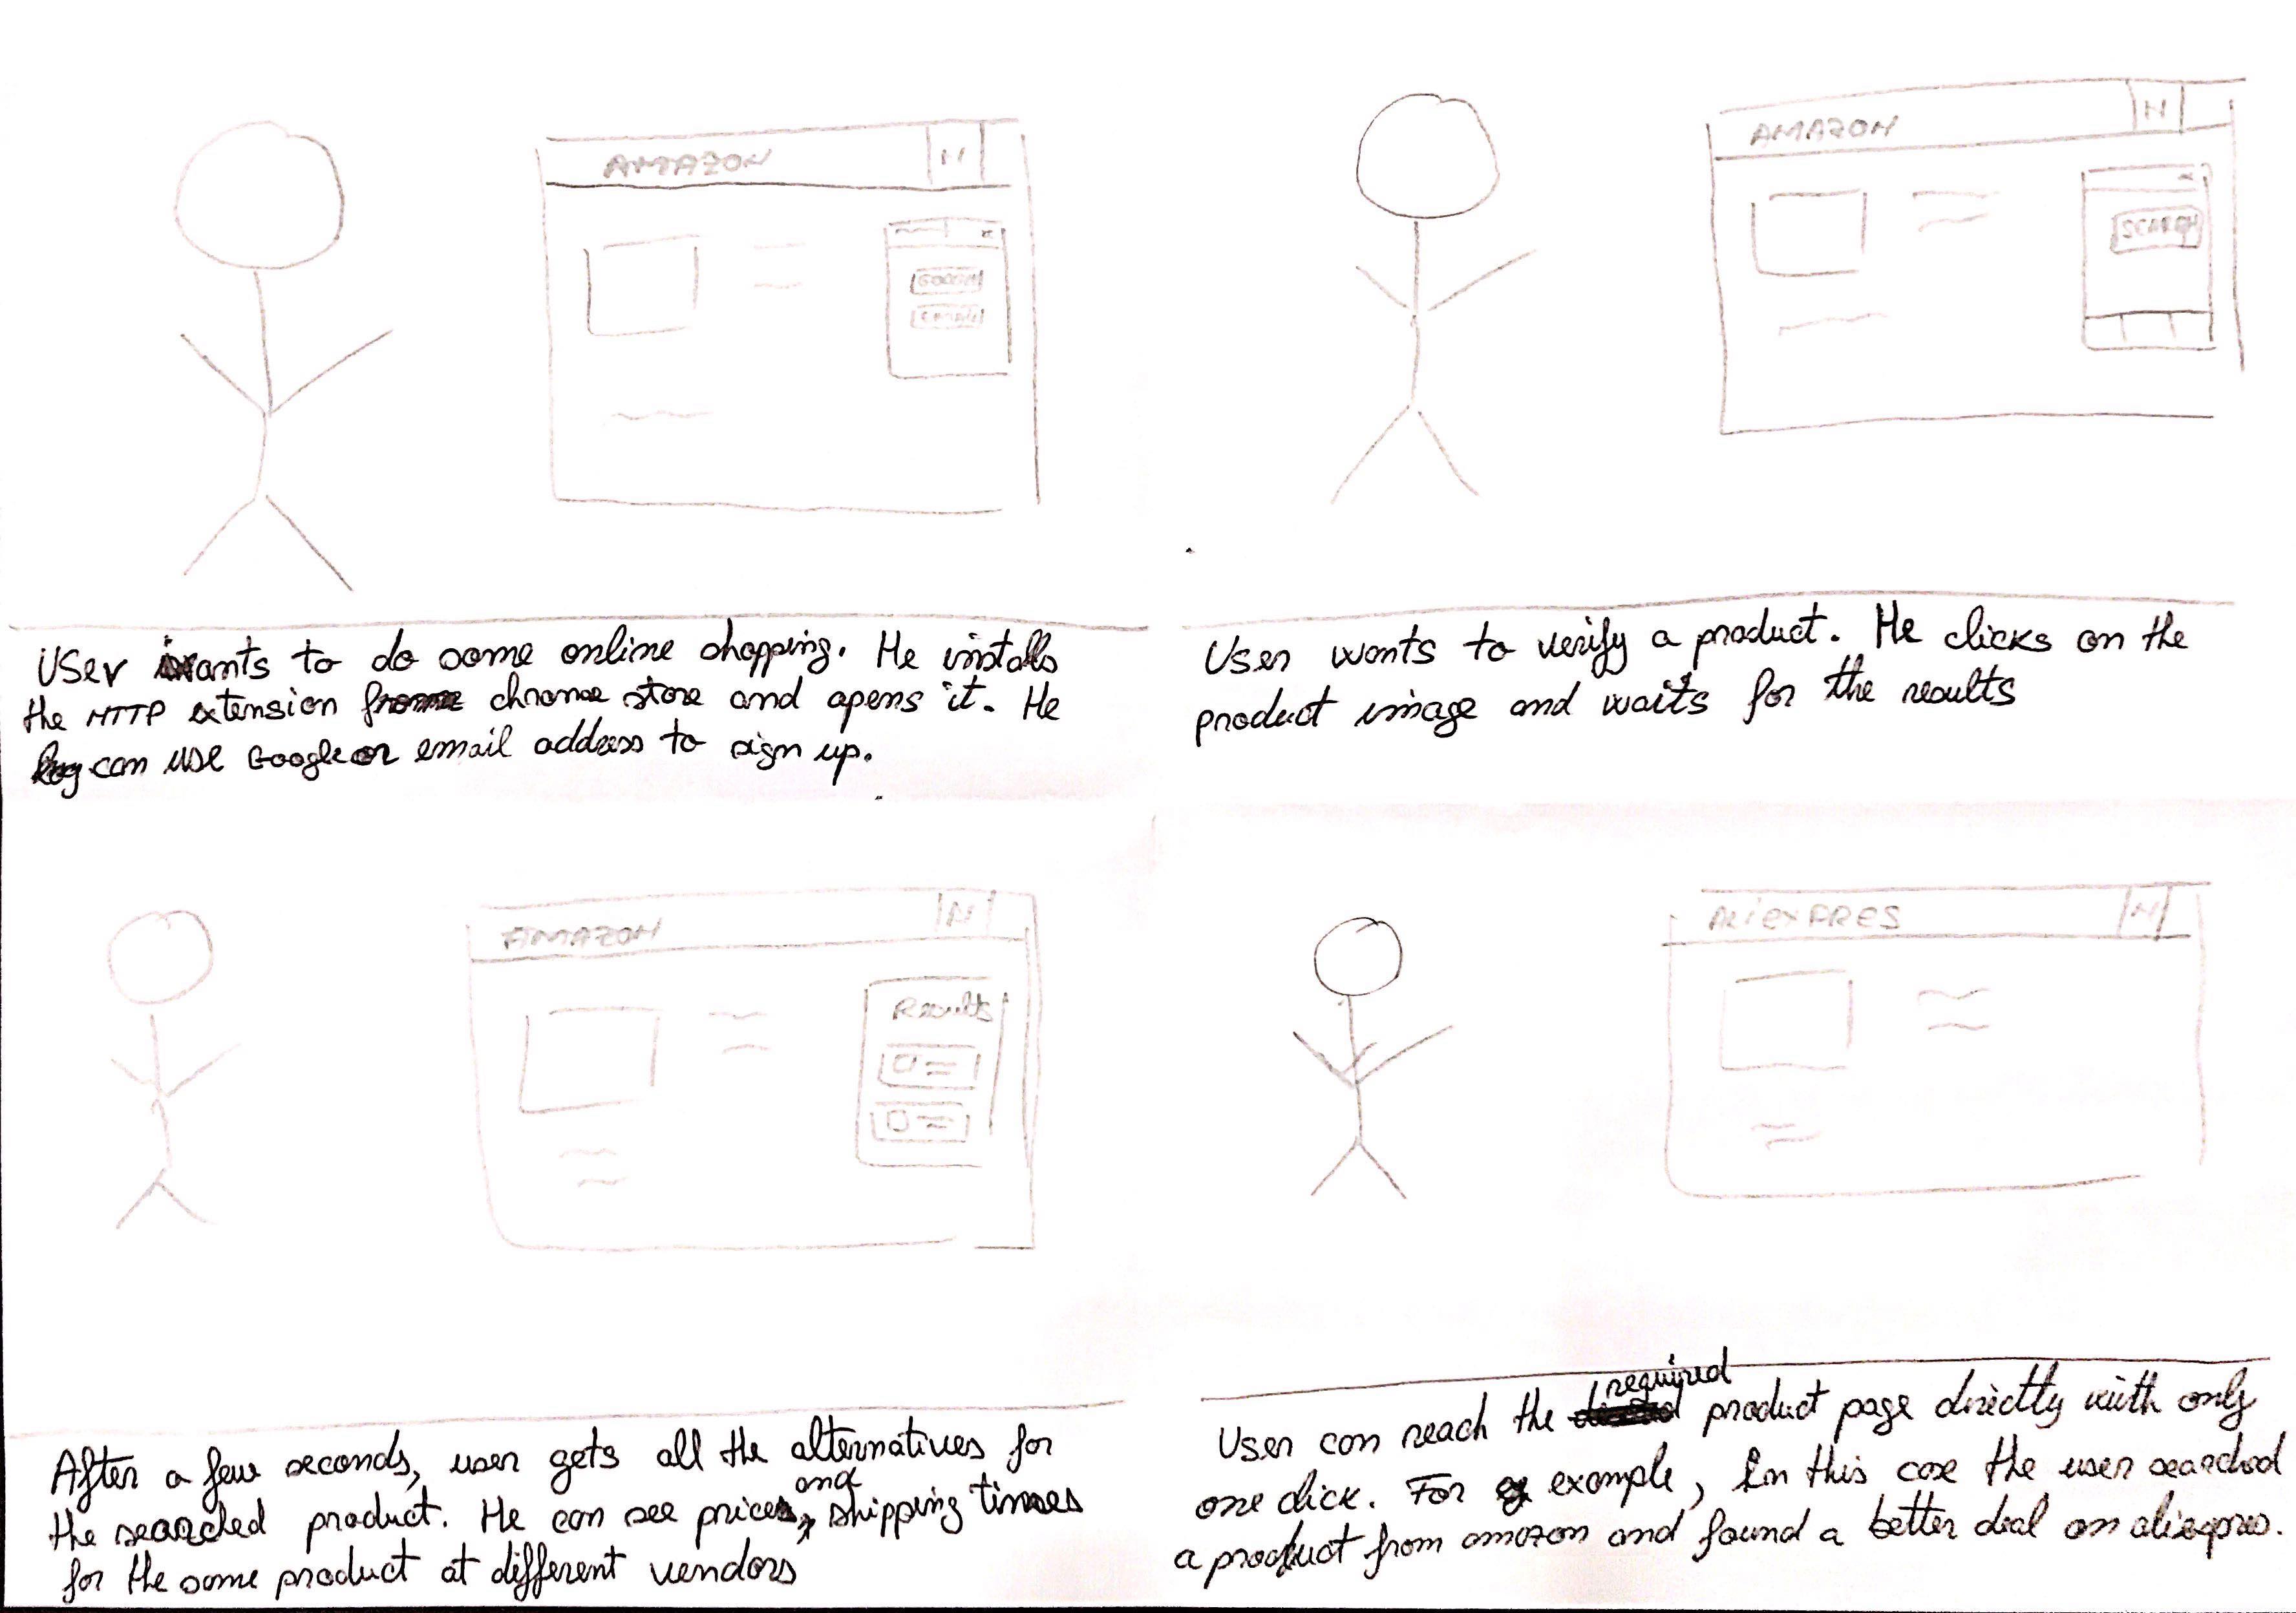 AMAZON H
GOOGLE
EMAIL
User wants to do some online shopping. He installs
the HTTP extension from chrome store and opens it. He
can use Google or email address to sign up.
AMAZON H
SEARCH
User wants to verify a product. He clicks on the
product image and waits for the results
AMAZON H
Results
After a few seconds, user gets all the alternatives for
the searched product. He can see prices and shipping times
for the same product at different vendors
ALiEXPRES H
User can reach the required product page directly with only
one click. For example, in this case the user searched
a product from amazon and found a better deal on aliexpres.